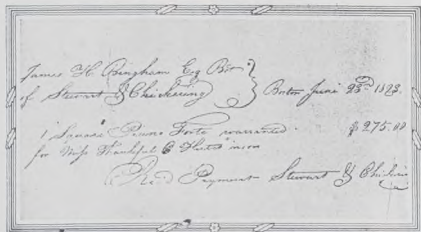 James H. Bingham Esq Bot
of Stewart & Chickering
Boston June 23rd 1823.
1 Square Piano Forte warranted $275.00
for Miss Thankful C
Recd Payment Stewart & Chickering